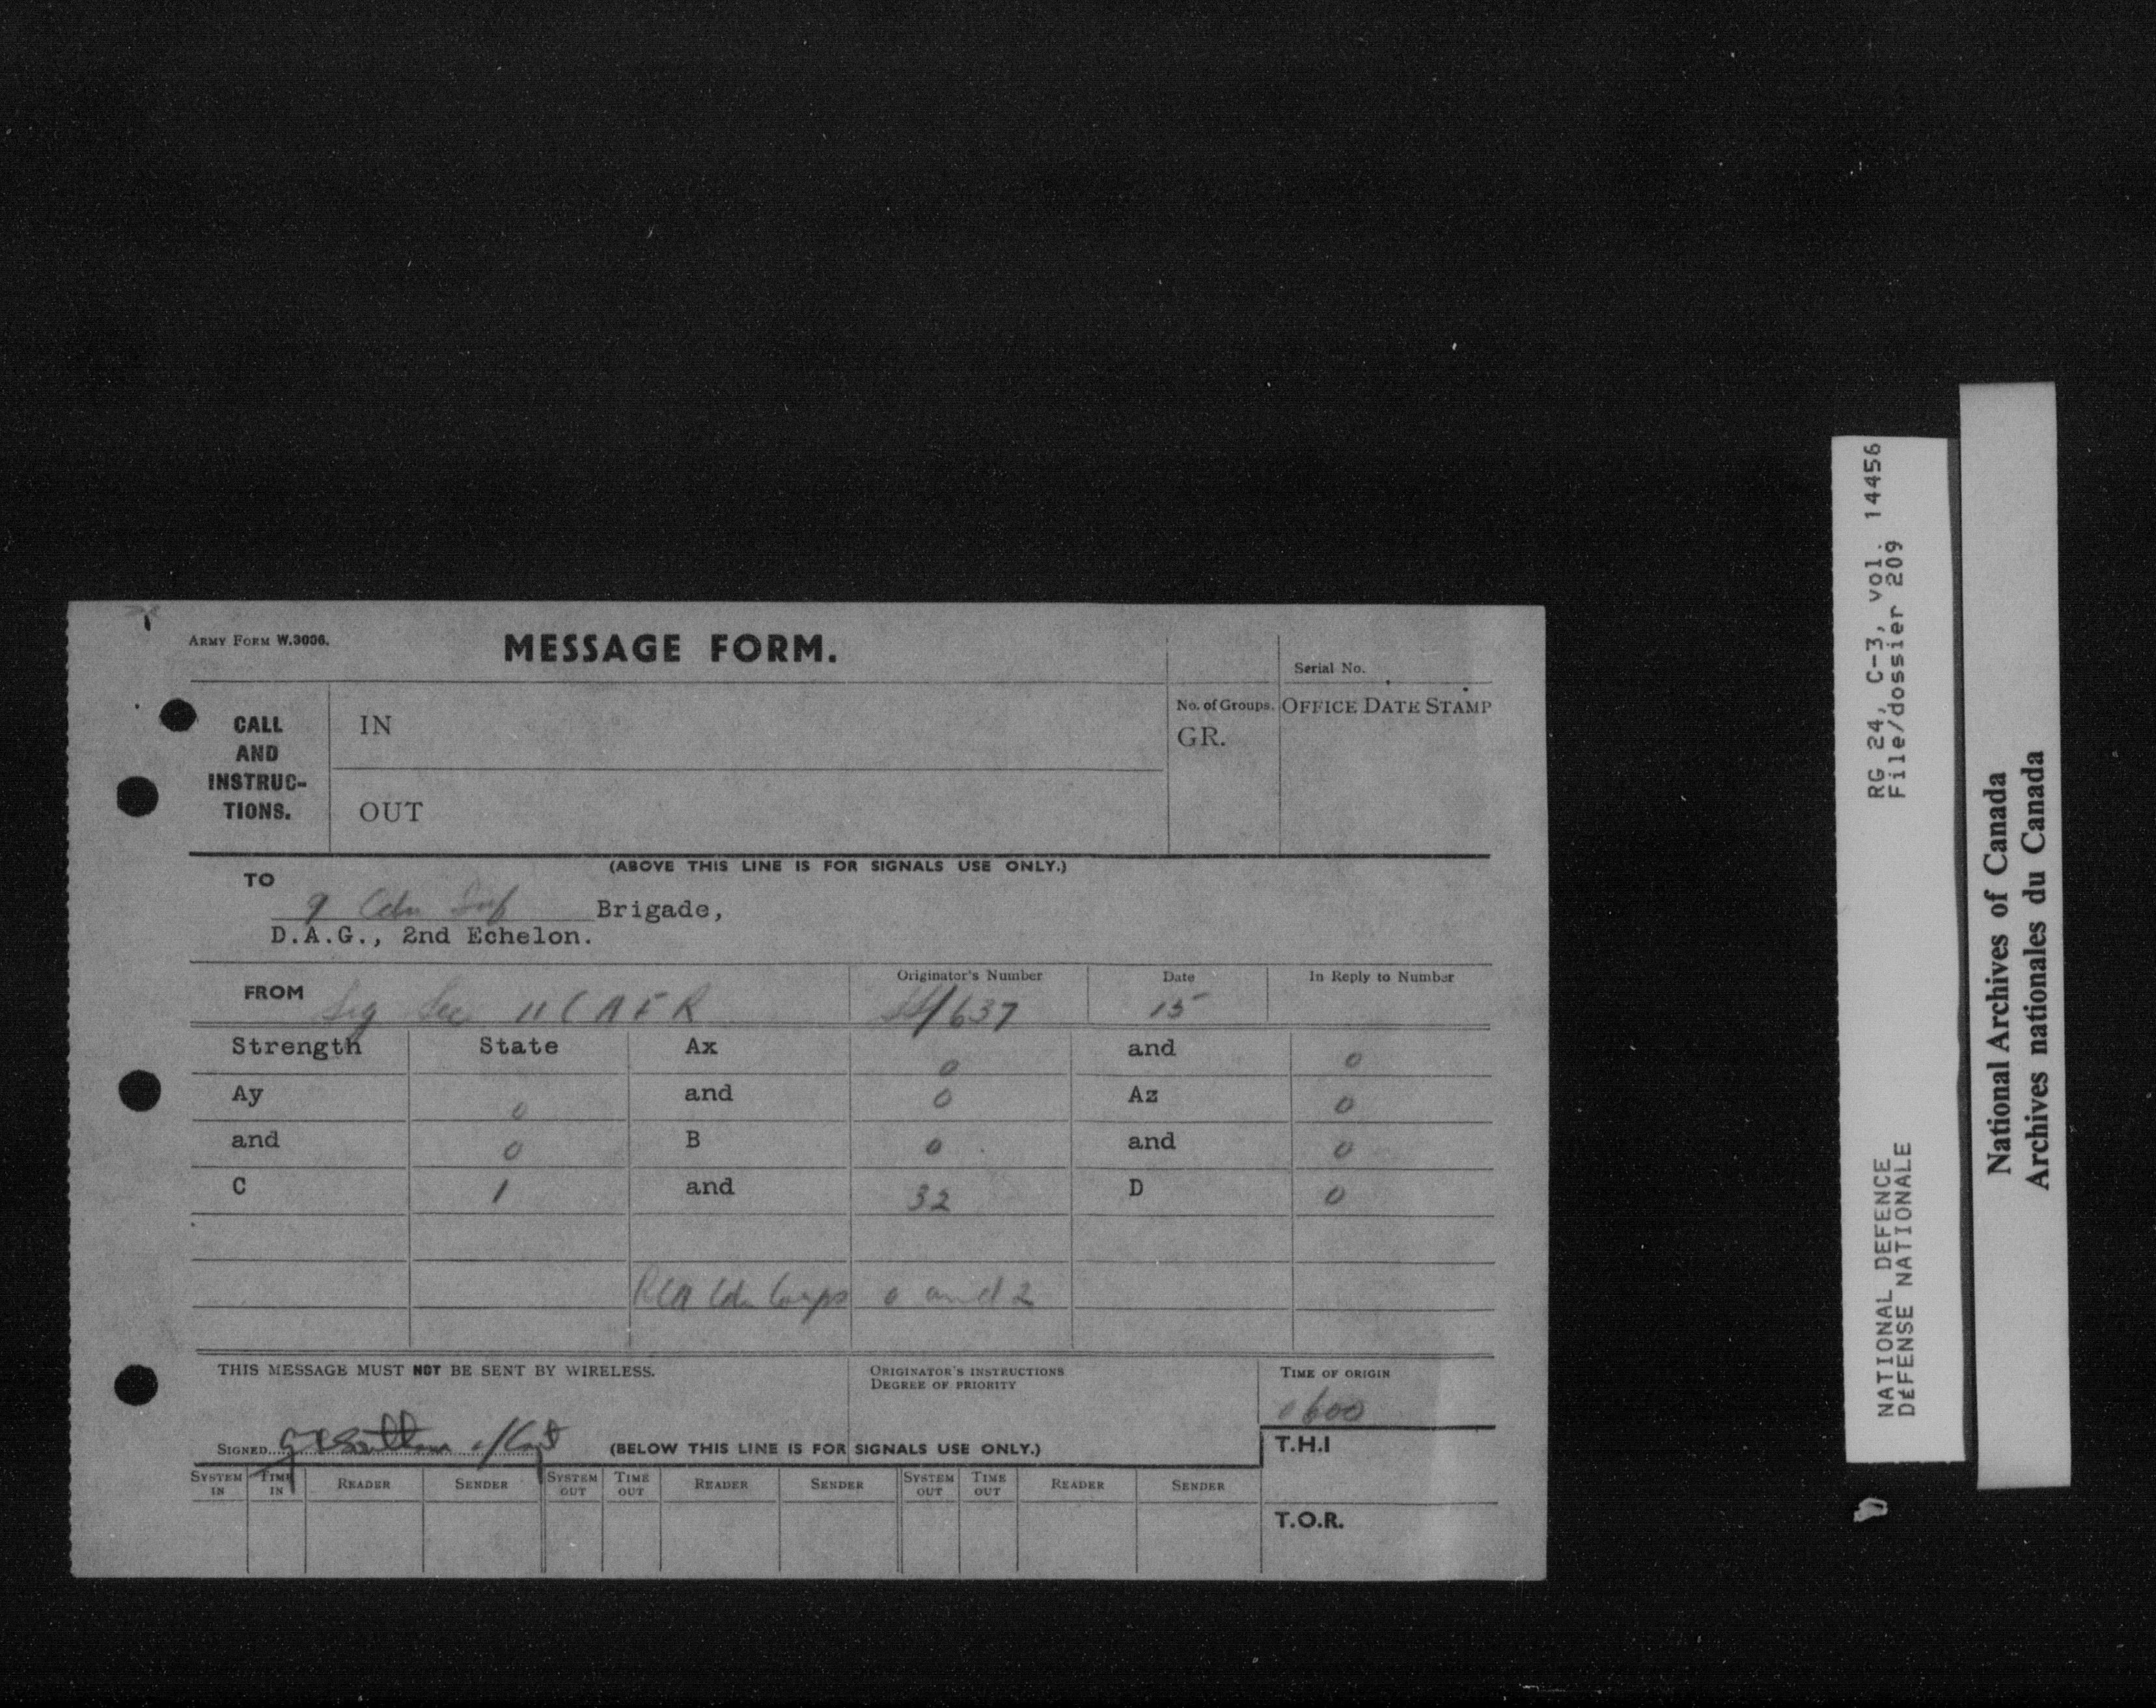 ARMY FORM W.3006.
MESSAGE FORM.
Serial No.
CALL
AND
INSTRUC-
TIONS.
IN
OUT
No. of Groups.
GR.
OFFICE DATE STAMP
(ABOVE THIS LINE IS FOR SIGNALS USE ONLY.)
TO
9 Cdn Inf Brigade,
D.A.G., 2nd Echelon.
FROM Sig Sec 11 C A F R
Originator's Number
/637
Date
15
In Reply to Number
Strength State Ax 0 and 0
Ay 0 and 0 Az 0
and 0 B 0 and 0
C 1 and 32 D 0
RCA Cdn Corps 0 and 2
THIS MESSAGE MUST NOT BE SENT BY WIRELESS.
ORIGINATOR'S INSTRUCTIONS
DEGREE OF PRIORITY
TIME OF ORIGIN
0600
SIGNED /Capt
(BELOW THIS LINE IS FOR SIGNALS USE ONLY.)
T.H.I
SYSTEM IN TIME IN READER SENDER SYSTEM OUT TIME OUT READER SENDER SYSTEM OUT TIME OUT READER SENDER
T.O.R.
RG 24, C-3, vol. 14456
File/dossier 209
NATIONAL DEFENCE
DÉFENSE NATIONALE
National Archives of Canada
Archives nationales du Canada